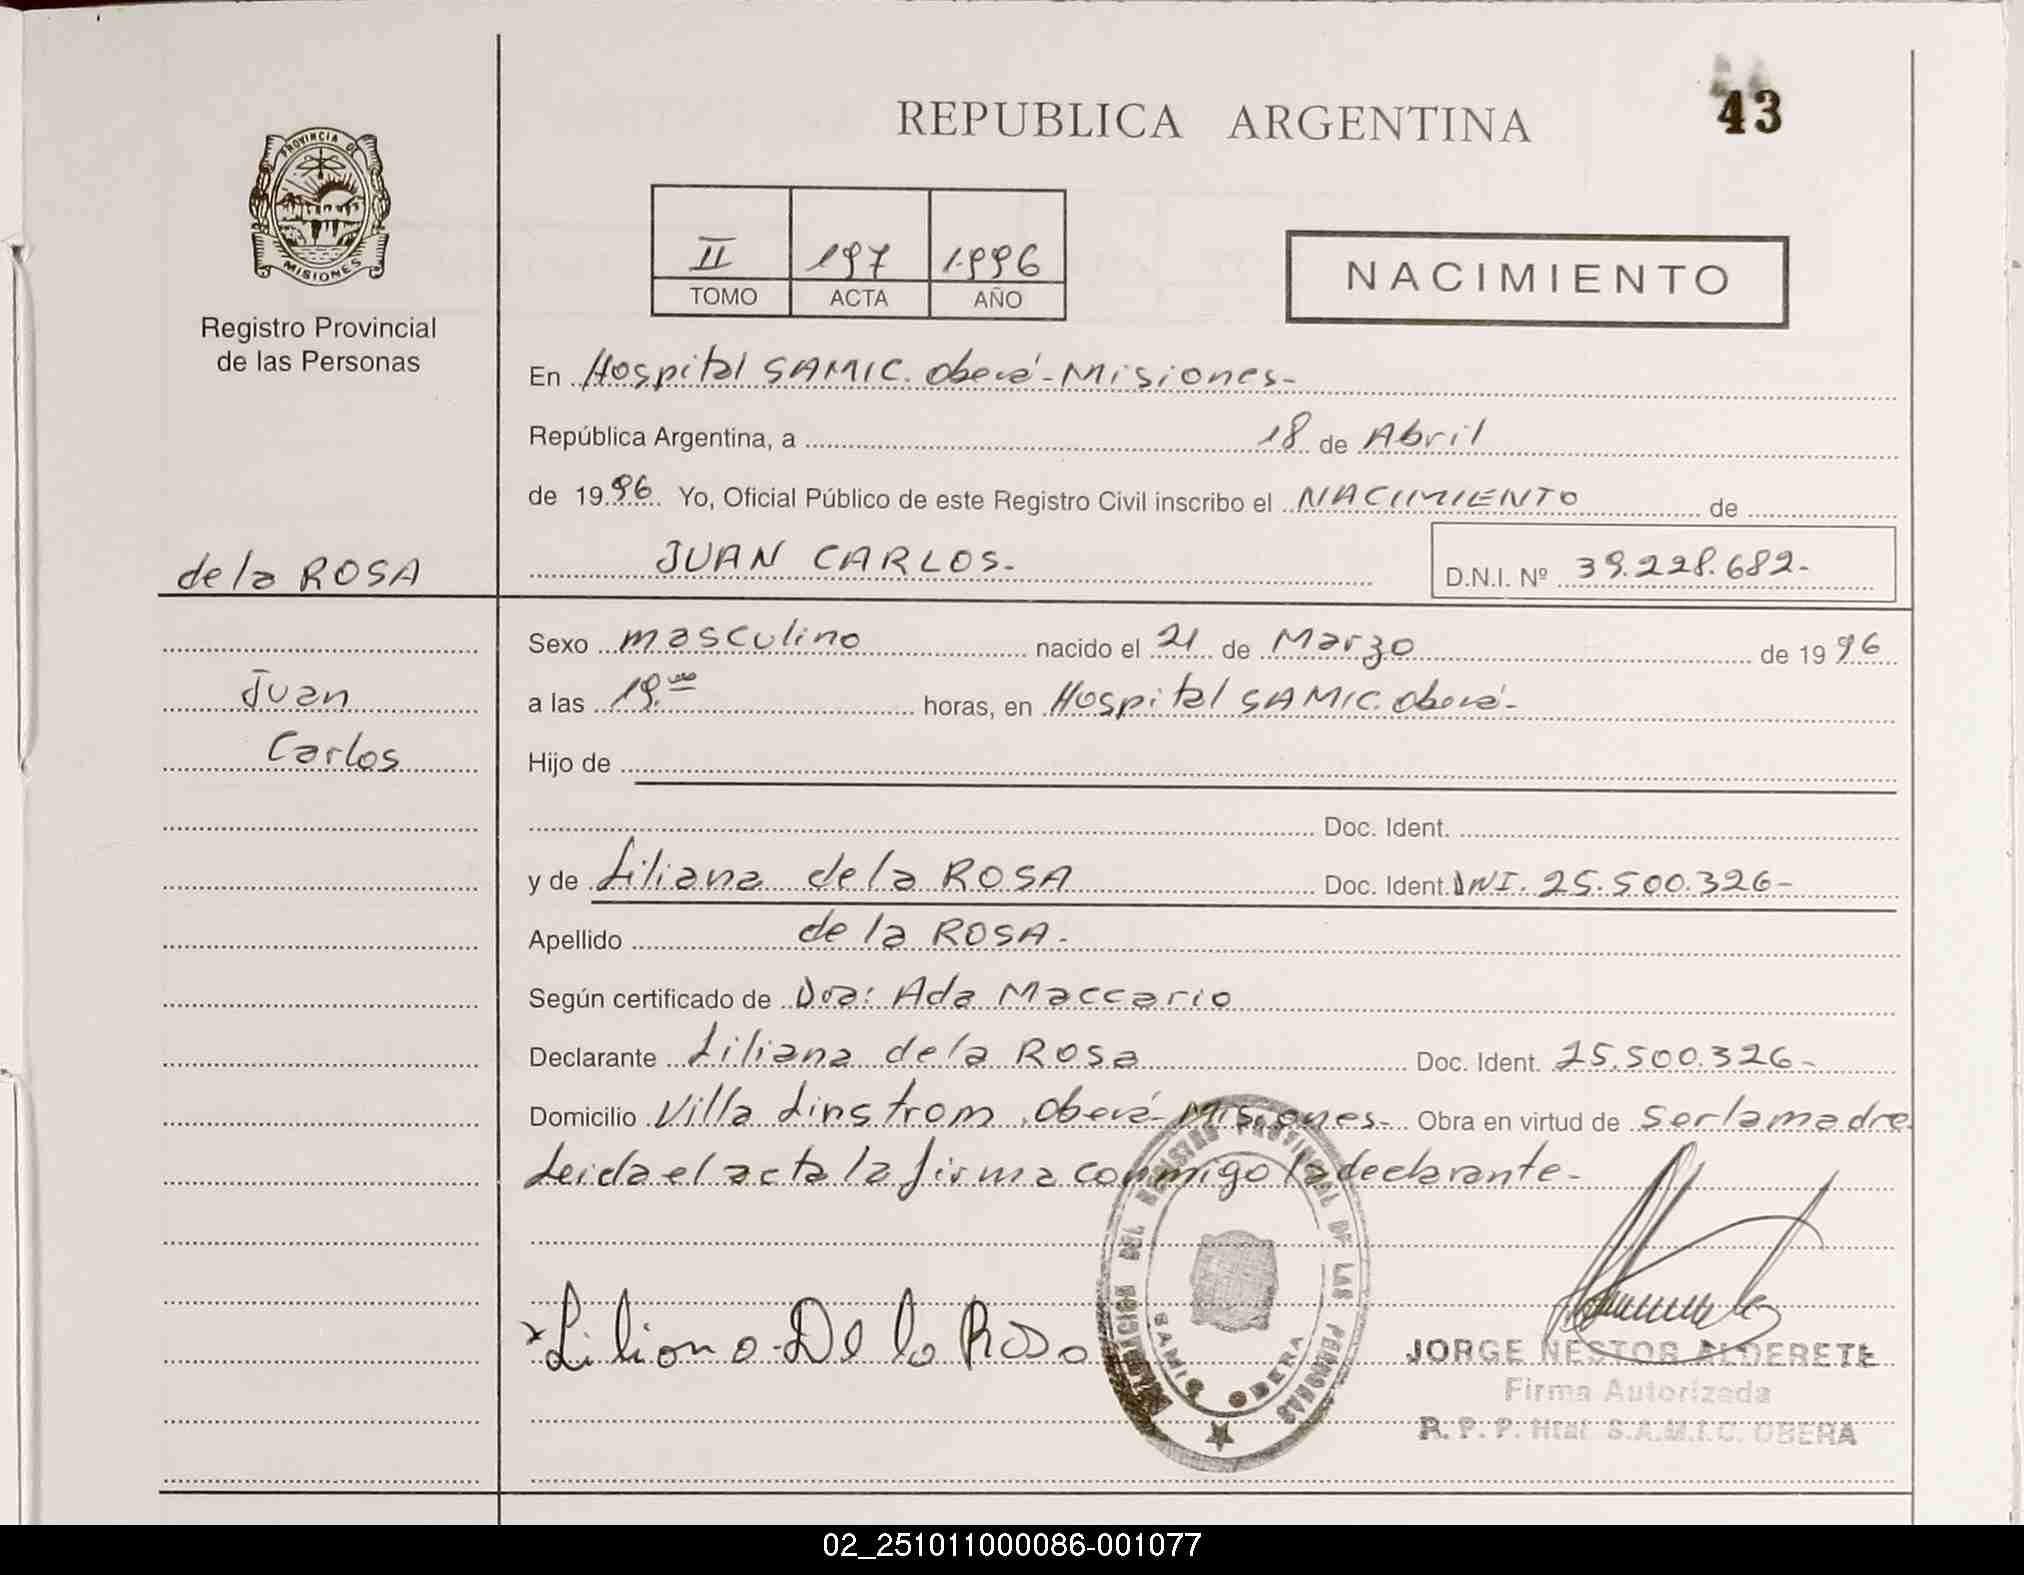 REPUBLICA ARGENTINA
43
PROVINCIA DE
MISIONES
Registro Provincial
de las Personas
II 197 1.996
TOMO ACTA AÑO
NACIMIENTO
En Hospital SAMIC. Oberá-Misiones-
República Argentina, a 18 de Abril
de 1996 Yo, Oficial Público de este Registro Civil inscribo el NACIMIENTO de
de la ROSA
JUAN CARLOS.- D.N.I. Nº 39.228.682-
Sexo masculino nacido el 21 de Marzo de 1996
Juan
a las 19.- horas, en Hospital SAMIC. Oberá-
Carlos
Hijo de
Doc. Ident.
y de Liliana de la ROSA Doc. Ident. DNI. 25.500.326-
Apellido de la ROSA.-
Según certificado de Dra: Ada Maccario
Declarante Liliana de la Rosa Doc. Ident. 25.500.326-
Domicilio Villa Linstrom, Oberá-Misiones- Obra en virtud de ser la madre
Leida el acta la firma conmigo la declarante-
DEL REGISTRO PROVINCIAL DE LAS PERSONAS
SAMIC OBERA
Liliana De la Rosa
JORGE NESTOR ALDERETE
Firma Autorizada
R. P. P. Htal S.A.M.I.C. OBERA
02_251011000086-001077